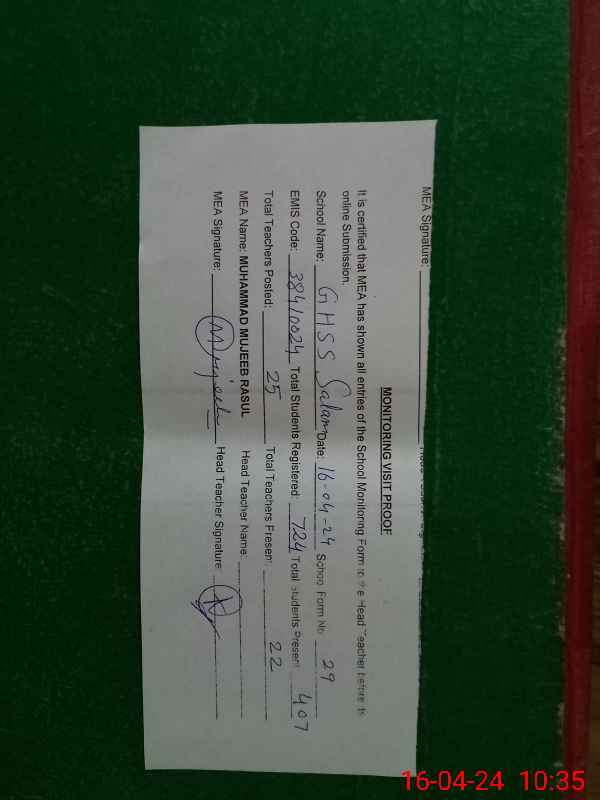 MEA Signature:
MONITORING VISIT PROOF
It is certified that MEA has shown all entries of the School Monitoring Form to the Head Teacher before its
online Submission.
School Name: GHSS Salam Date: 16-04-24 School Form No: 29
EMIS Code: 38410024 Total Students Registered: 724 Total Students Present: 407
Total Teachers Posted: 25 Total Teachers Present: 22
MEA Name: MUHAMMAD MUJEEB RASUL Head Teacher Name:
MEA Signature: Mujeeb Head Teacher Signature
16-04-24 10:35